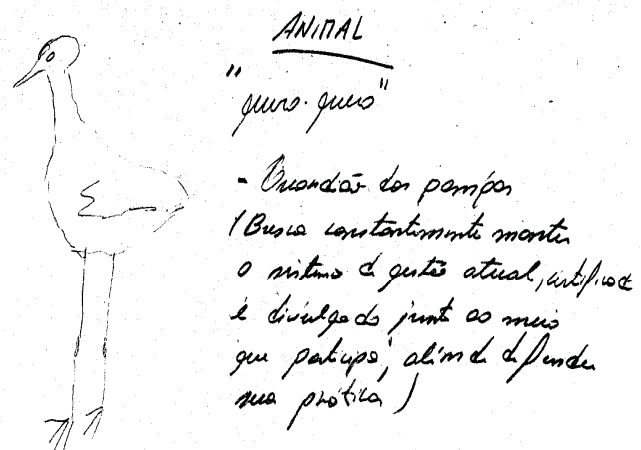 ANIMAL
"quero-quero"
- Guardião dos pampas
(Busca constantemente manter
o sistema de gestão atual, certificado
e divulgado junto ao meio
que participa, além de defender
sua prática)